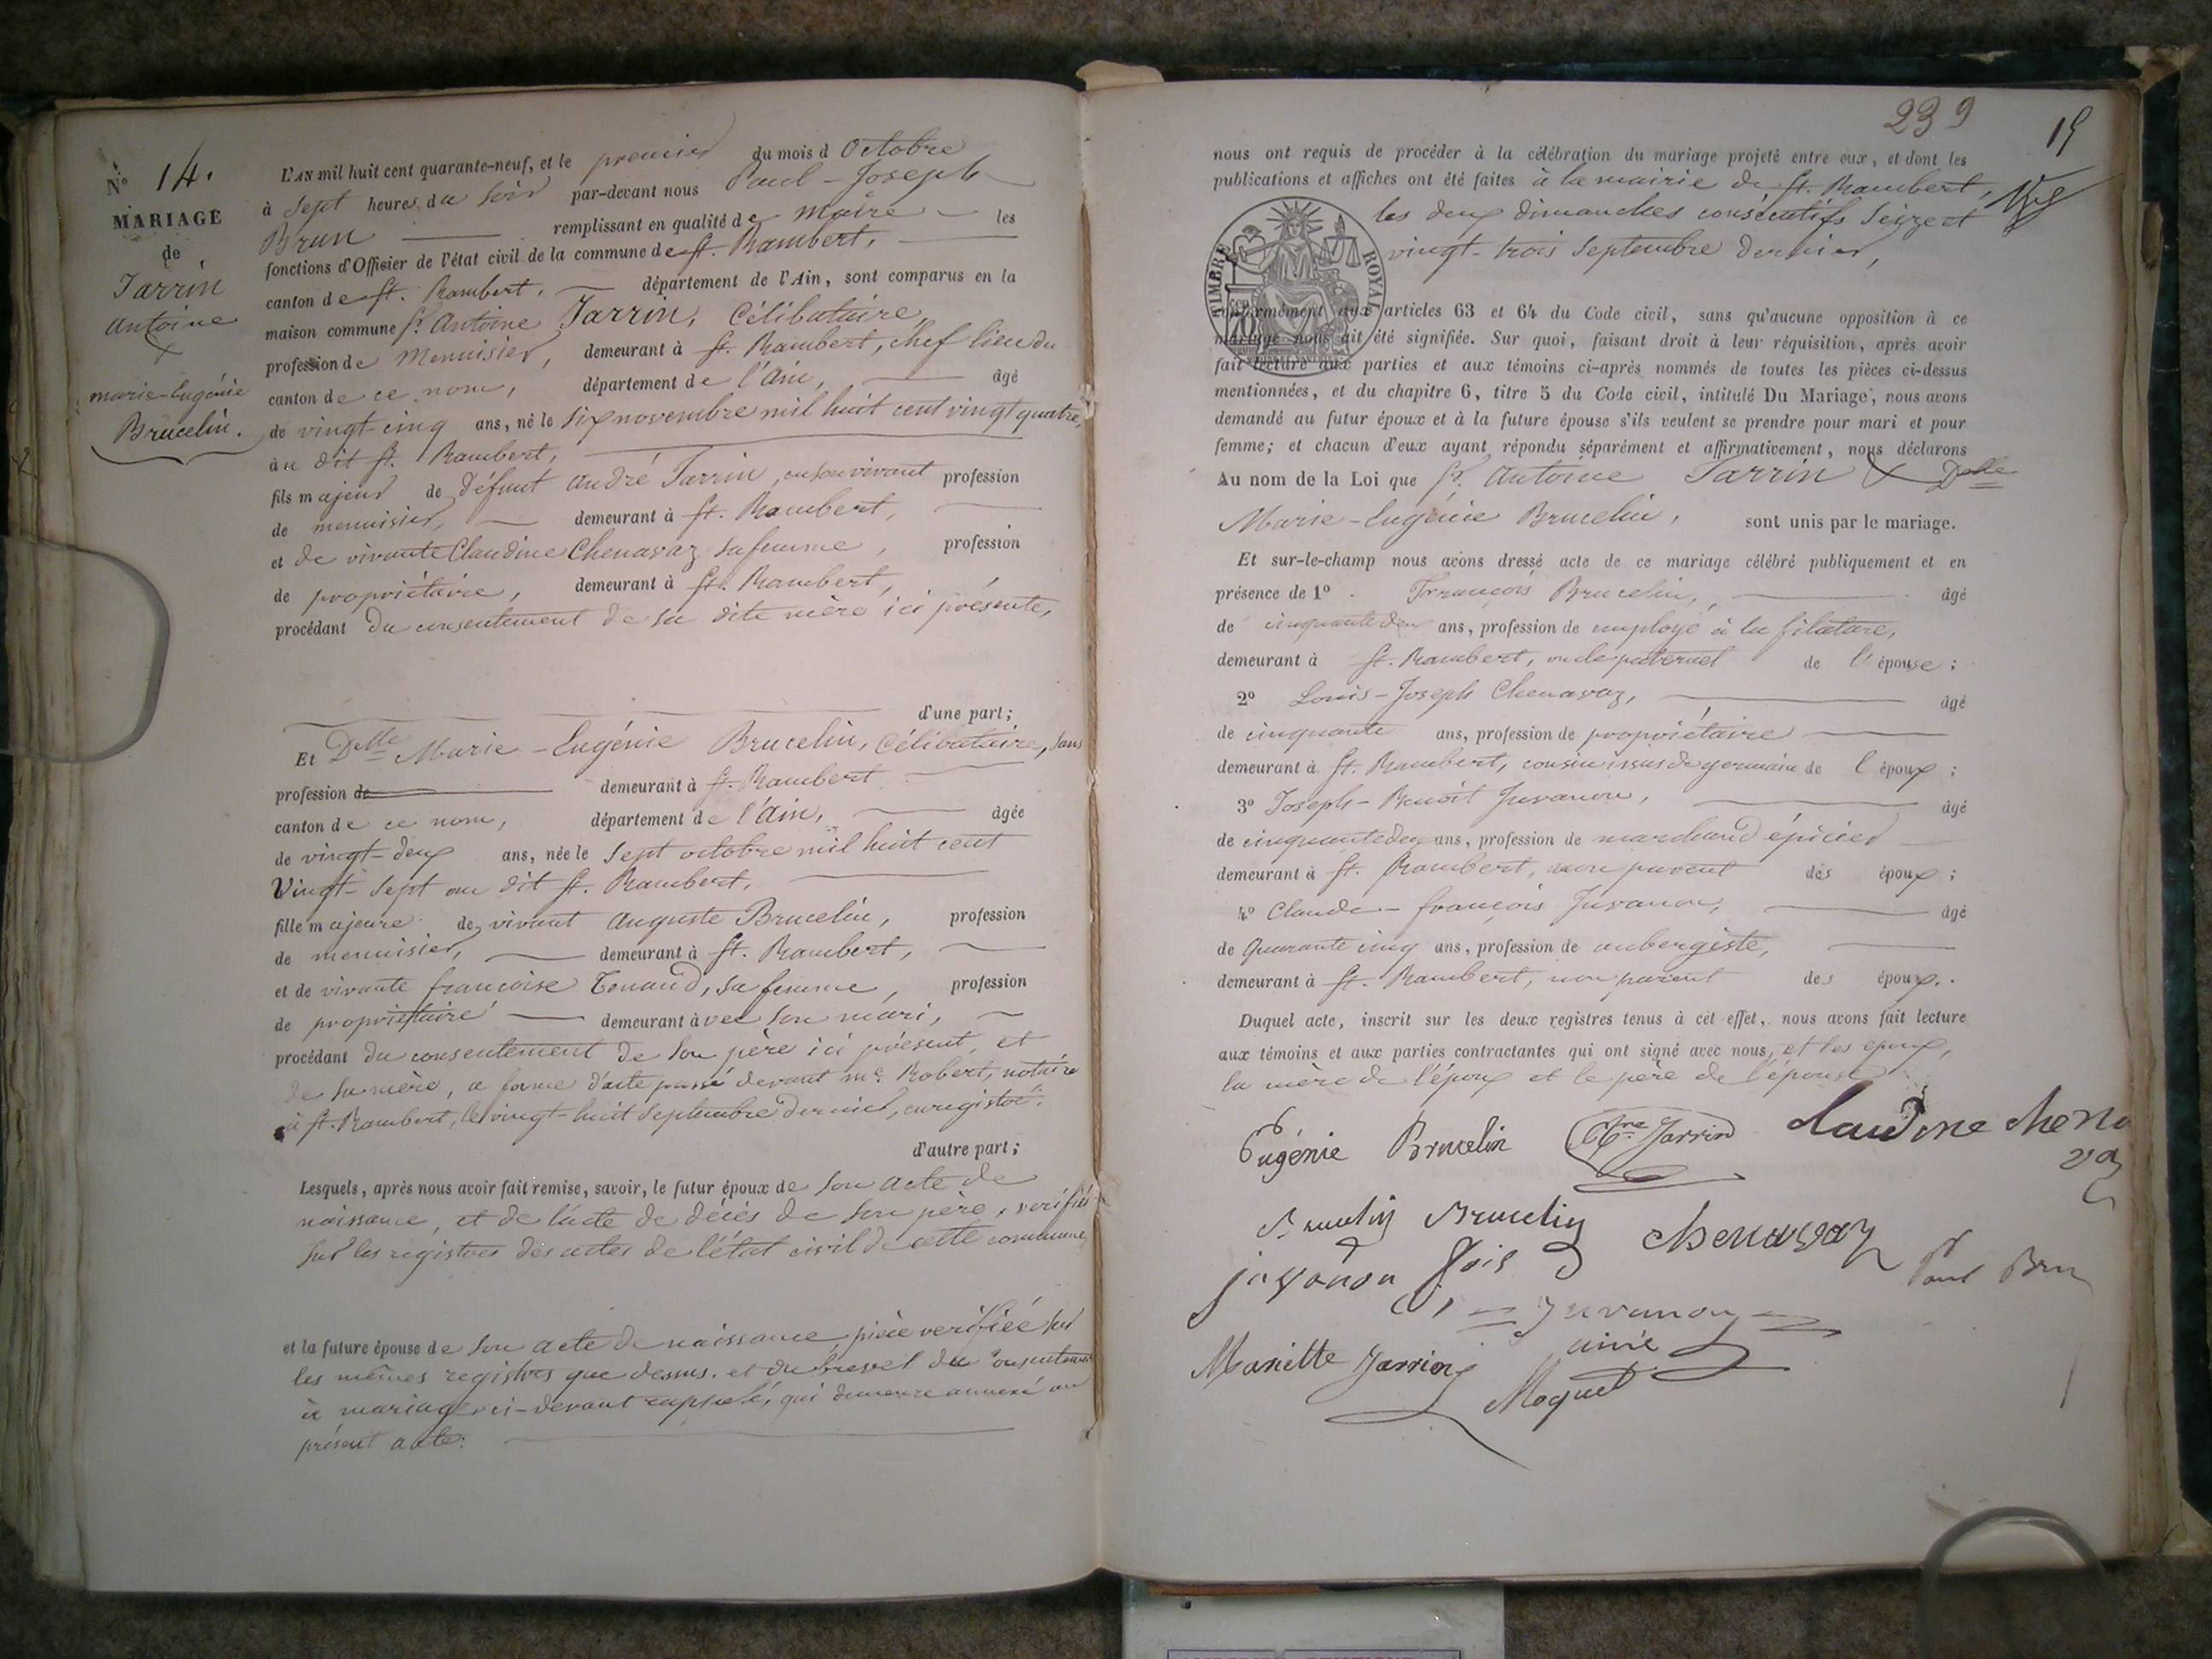 N° 14.
MARIAGE
de
Jarrin
Antoine
&
marie-Eugénie
Brucelin.
L'AN mil huit cent quarante-neuf, et le premier du mois d Octobre
à Sept heures du soir par-devant nous Paul-Joseph
Brun remplissant en qualité de Maire les
fonctions d'Officier de l'état civil de la commune de St. Rambert,
canton de St. Rambert, département de l'Ain, sont comparus en la
maison commune Sr. Antoine Jarrin, Célibataire,
profession de Menuisier, demeurant à St. Rambert, chef lieu du
canton de ce nom, département de l'Ain, âgé
de vingt-cinq ans, né le Six novembre mil huit cent vingt quatre,
au dit St. Rambert,
fils majeur de défunt André Jarrin, en son vivant profession
de menuisier, demeurant à St. Rambert,
et de vivante Claudine Chenavaz sa femme, profession
de propriétaire, demeurant à St. Rambert,
procédant du consentement de sa dite mère ici présente,
d'une part;
Et Delle Marie-Eugénie Brucelin, Célibataire, sans
profession de demeurant à St. Rambert
canton de ce nom, département de l'Ain, âgée
de vingt-deux ans, née le Sept octobre mil huit cent
Vingt-sept au dit St. Rambert,
fille majeure de vivant Auguste Brucelin, profession
de menuisier, demeurant à St. Rambert,
et de vivante françoise Tenand, sa femme, profession
de propriétaire demeurant avec son mari,
procédant du consentement de son père ici présent, et
de sa mère, a forme d'acte passé devant me. Robert, notaire
à St. Rambert, le vingt-huit Septembre dernier, enregistré.
d'autre part;
Lesquels, après nous avoir fait remise, savoir, le futur époux de son acte de
naissance, et de l'acte de décès de son père, vérifiés
sur les registres des actes de l'état civil de cette commune,
et la future épouse de son acte de naissance, pièce verifiée sur
les mêmes registres que dessus, et du brevet du consentement
à mariage ci-devant rappelé, qui demeure annexé au
présent acte.
239
19
nous ont requis de procéder à la célébration du mariage projeté entre eux, et dont les
publications et affiches ont été faites à la mairie de St. Rambert,
les deux dimanches consécutifs Seize et
vingt-trois Septembre dernier,
TIMBRE ROYAL
70
conformément aux articles 63 et 64 du Code civil, sans qu'aucune opposition à ce
mariage nous ait été signifiée. Sur quoi, faisant droit à leur réquisition, après avoir
fait lecture aux parties et aux témoins ci-après nommés de toutes les pièces ci-dessus
mentionnées, et du chapitre 6, titre 5 du Code civil, intitulé Du Mariage, nous avons
demandé au futur époux et à la future épouse s'ils veulent se prendre pour mari et pour
femme; et chacun d'eux ayant répondu séparément et affirmativement, nous déclarons
Au nom de la Loi que Sr. Antoine Jarrin & Delle
Marie-Eugénie Brucelin, sont unis par le mariage.
Et sur-le-champ nous avons dressé acte de ce mariage célébré publiquement et en
présence de 1° François Brucelin, âgé
de cinquante deux ans, profession de employé à la filature,
demeurant à St. Rambert, oncle paternel de l'épouse;
2° Louis-Joseph Chenavaz, âgé
de cinquante ans, profession de propriétaire
demeurant à St. Rambert, cousin issus de germain de l'époux;
3° Joseph-Benoit Juvanon, âgé
de cinquante deux ans, profession de marchand épicier
demeurant à St. Rambert, non parent des époux;
4° Claude-françois Juvanon, âgé
de Quarante cinq ans, profession de aubergiste,
demeurant à St. Rambert, non parent des époux.
Duquel acte, inscrit sur les deux registres tenus à cet effet, nous avons fait lecture
aux témoins et aux parties contractantes qui ont signé avec nous, et les epoux,
la mère de l'époux et le père de l'épouse.
Eugénie Brucelin Jarrin Claudine chena
vaz
Brucelin Brucelin chenavaz
juvanon fois Paul Brun
Juvanon
ainé
Mariette Jarrin
Moquet